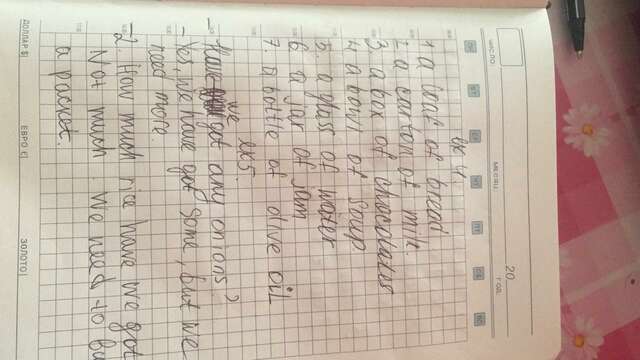 ЧИСЛО
МЕСЯЦ
20
ГОД
ПН
ВТ
СР
ЧТ
ПТ
СБ
ВС
ex 4.
1. a loaf of bread
2. a carton of milk.
3. a box of chocolates
4 a bowl of soup
5. a glass of water
6. a jar of jam
7. a bottle of olive oil
ex 5.
Have we got any onions?
- Yes, we have got some, but we
need more.
-2. How much rice have we got
Not much We need to bu
a packet.
ДОЛЛАР $|
ЕВРО €|
ЗОЛОТО|